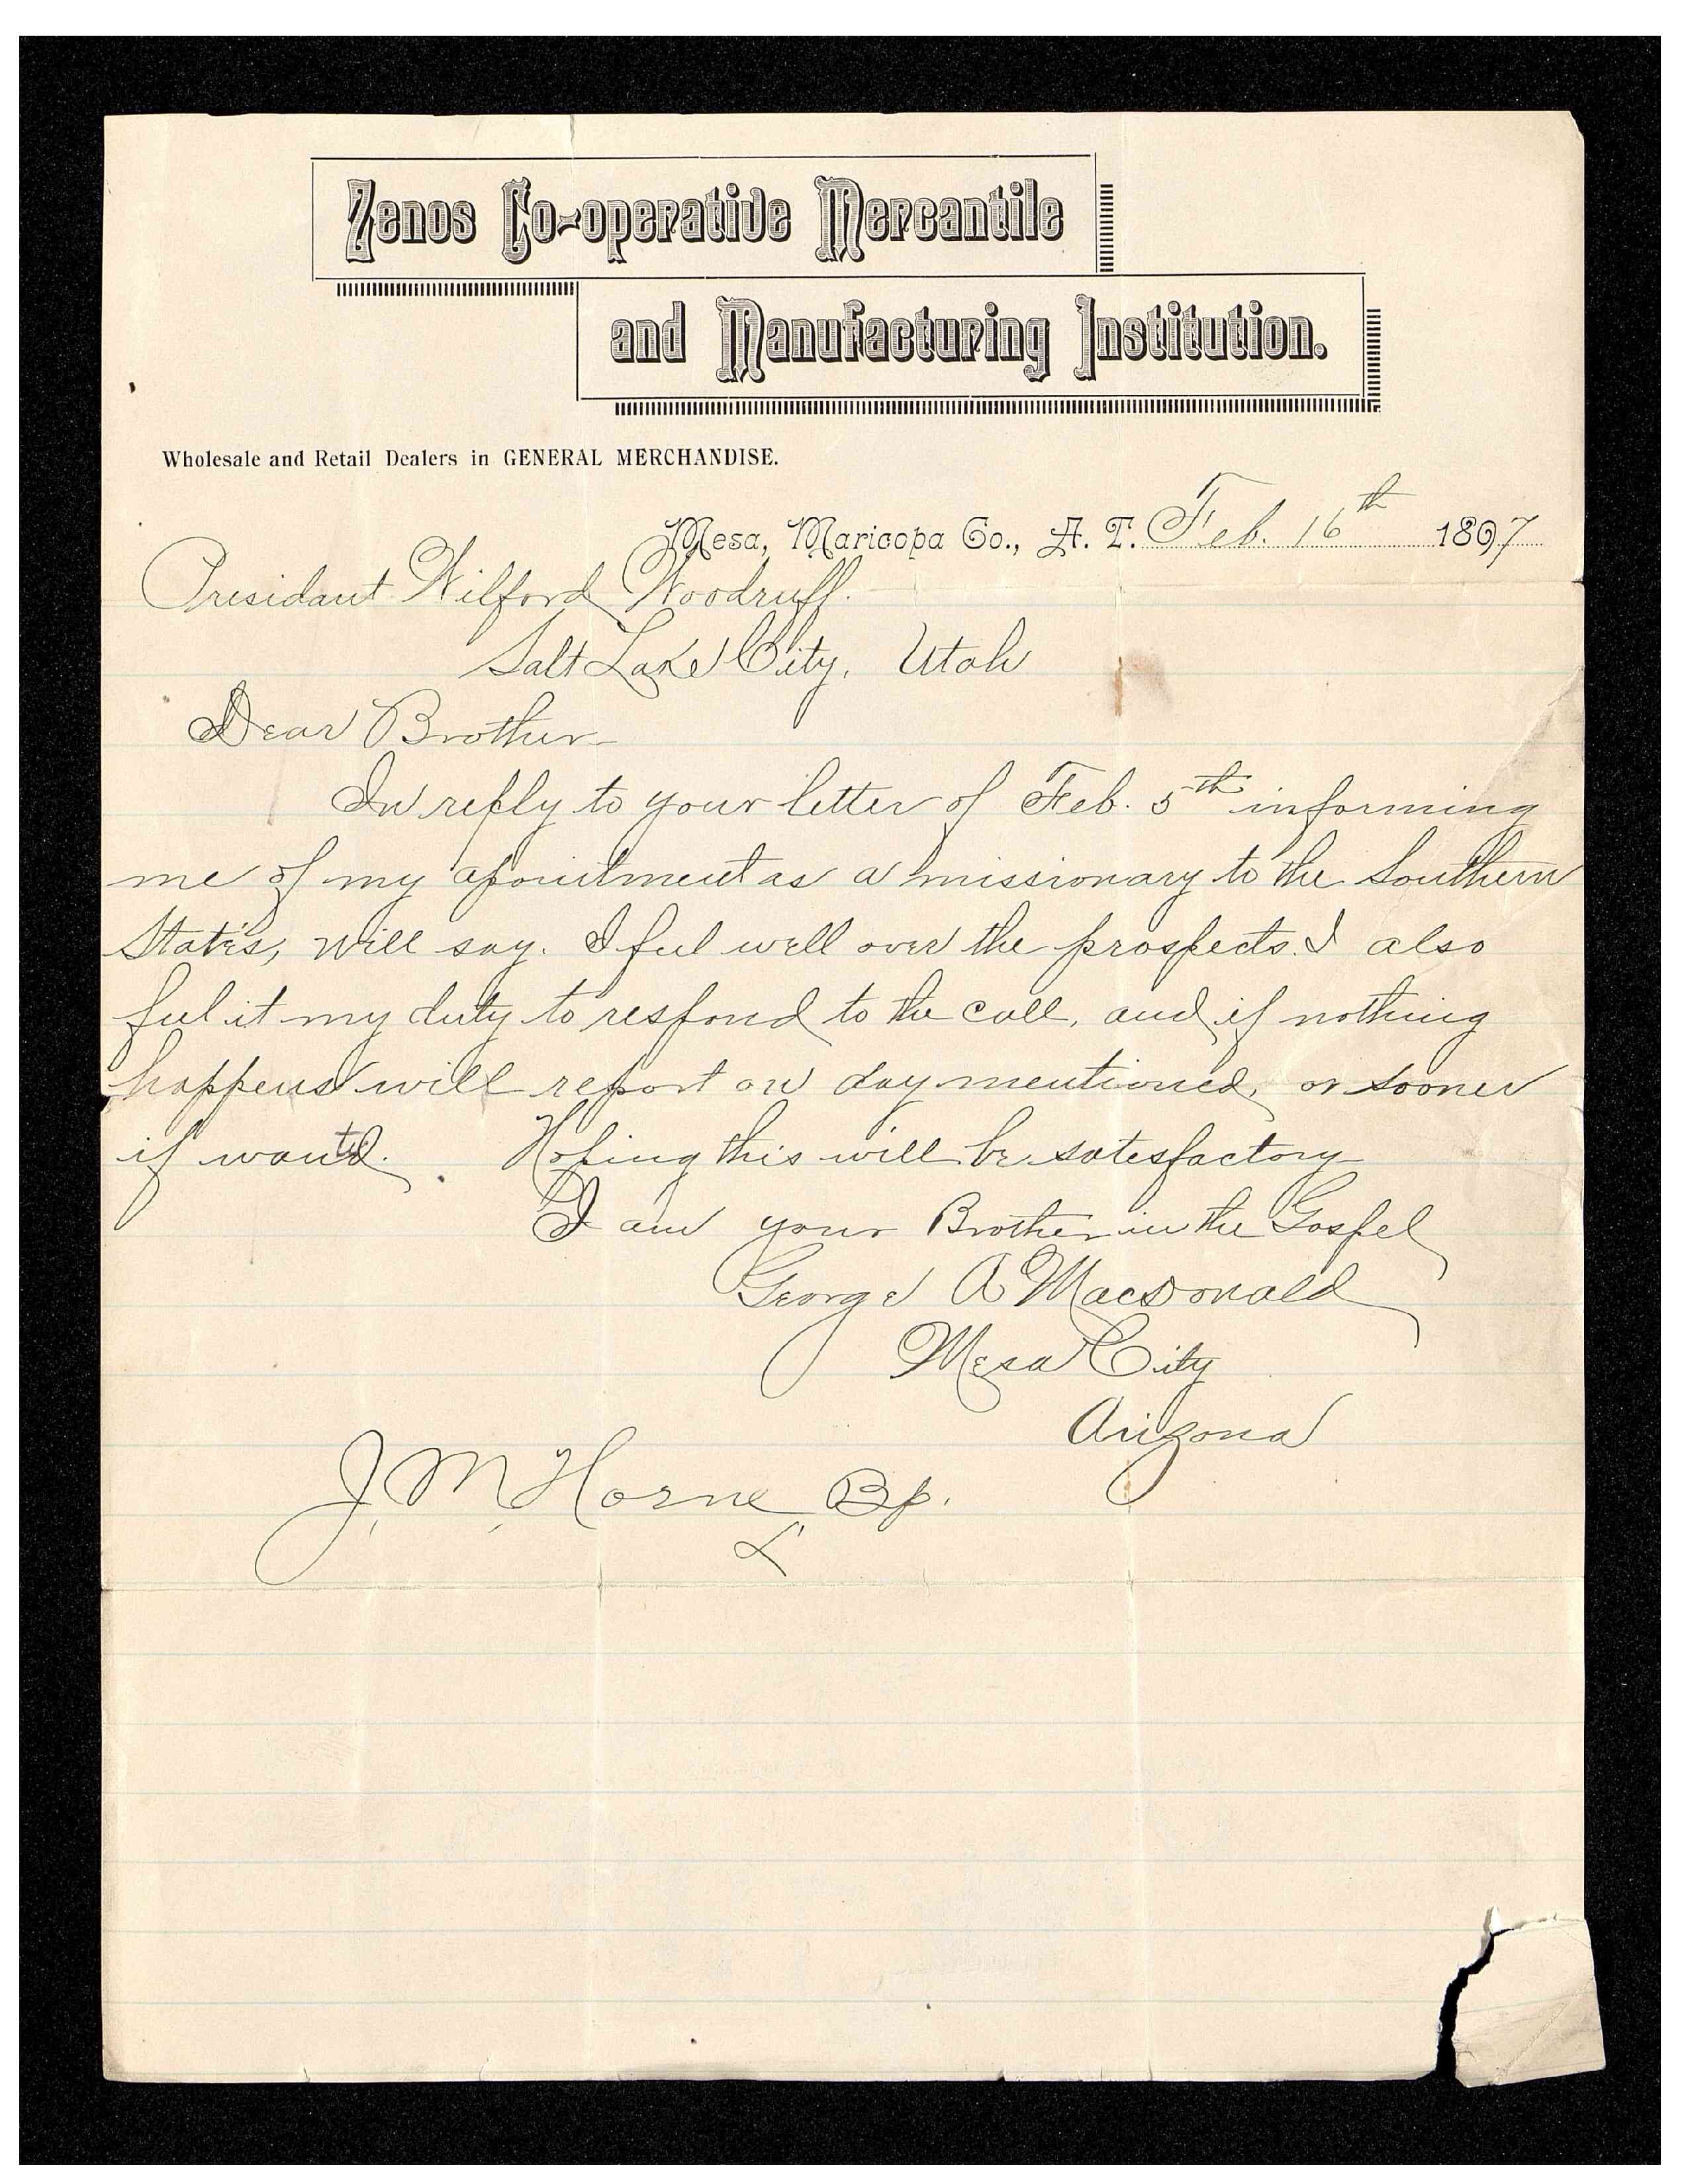 Zenos Co-operative Mercantile
and Manufacturing Institution.
Wholesale and Retail Dealers in GENERAL MERCHANDISE.
Mesa, Maricopa Co., A. T. Feb. 16th 1897
Presidant Wilford Woodruff.
Salt Lake City, Utah
Dear Brother
In reply to your letter of Feb. 5th informing
me of my apointment as a missionary to the Southern
States, will say. I feel well over the prospects. I also
feel it my duty to respond to the call, and if nothing
happens will report on day mentioned, or sooner
if wanted. Hoping this will be satesfactory
I am your Brother in the Gospel
George A Macdonald
Mesa City
Arizona
J. M. Horne Bp.